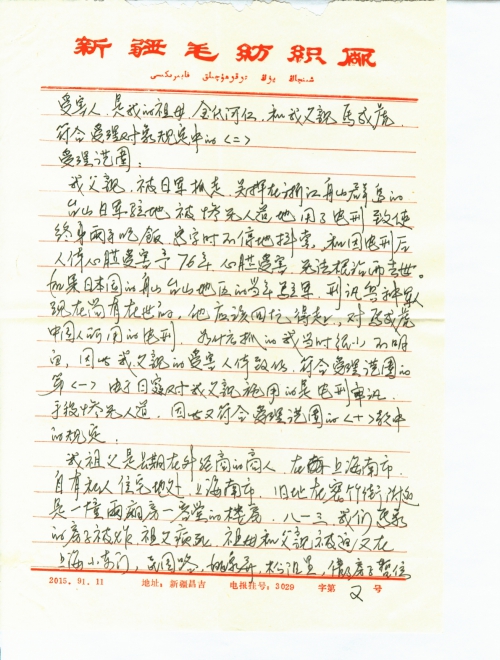 新疆毛纺织厂
شىنجاڭ يۇڭ توقۇمىچىلىق فابرىكىسى
受害人，是我的祖母 和我父亲马
符合受理对象规定中的〈二〉
受理范围：
我父亲，被日军抓走，关押在浙江舟山群岛的
台山日军驻地 被惨无人道地用了电刑 致使
终身两手吃饭，写字时不停地抖索，和因电刑后
人倍心脏受害于76年 心脏受害 无法根治而去世。
如果日本国的舟山台山地区的当年 刑讯 军人
现在尚有在世的，他应该回忆得起，对马
中国人所用的电刑， 为什么抓的我当时 小 不明
白，因此我父亲的受害人 符合受理范围的
第〈一〉由于日寇对我父亲施用的是电刑审讯
手段惨无人道，因此又符合受理范围的〈十〉款中
的规定。
我祖父是长期在外经商的商人 在 上海南市
自有私人住宅地处 上海南市，旧地在密竹街
是一幢两厢房一客堂的楼房，八一三，我们
的房子被炸 祖父病死，祖母和父亲被迫又在
上海小东门，民国路， 借房子暂住
2015.91.11 地址：新疆昌吉 电报挂号：3029 字第 2 号